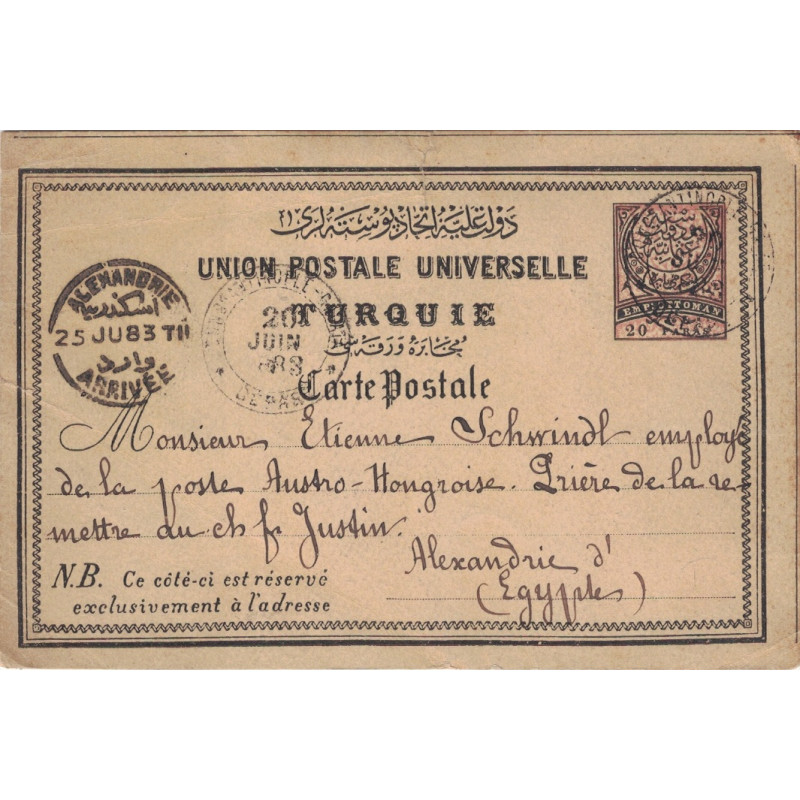 دولت عليه اتحاد پوسته لرى
UNION POSTALE UNIVERSELLE
TURQUIE
مخابره ورقه سى
Carte Postale
EMP: OTTOMAN
20 PARAS
ALEXANDRIE
اسكندرية
25 JU 83 TII
وارد
ARRIVÉE
20
JUIN
DEPART
Monsieur Etienne Schwindt employé
de la poste Austro-Hongroise. Prière de la re-
mettre au ch f Justin.
Alexandrie d'
(Egypte)
N.B. Ce côté-ci est réservé
exclusivement à l'adresse